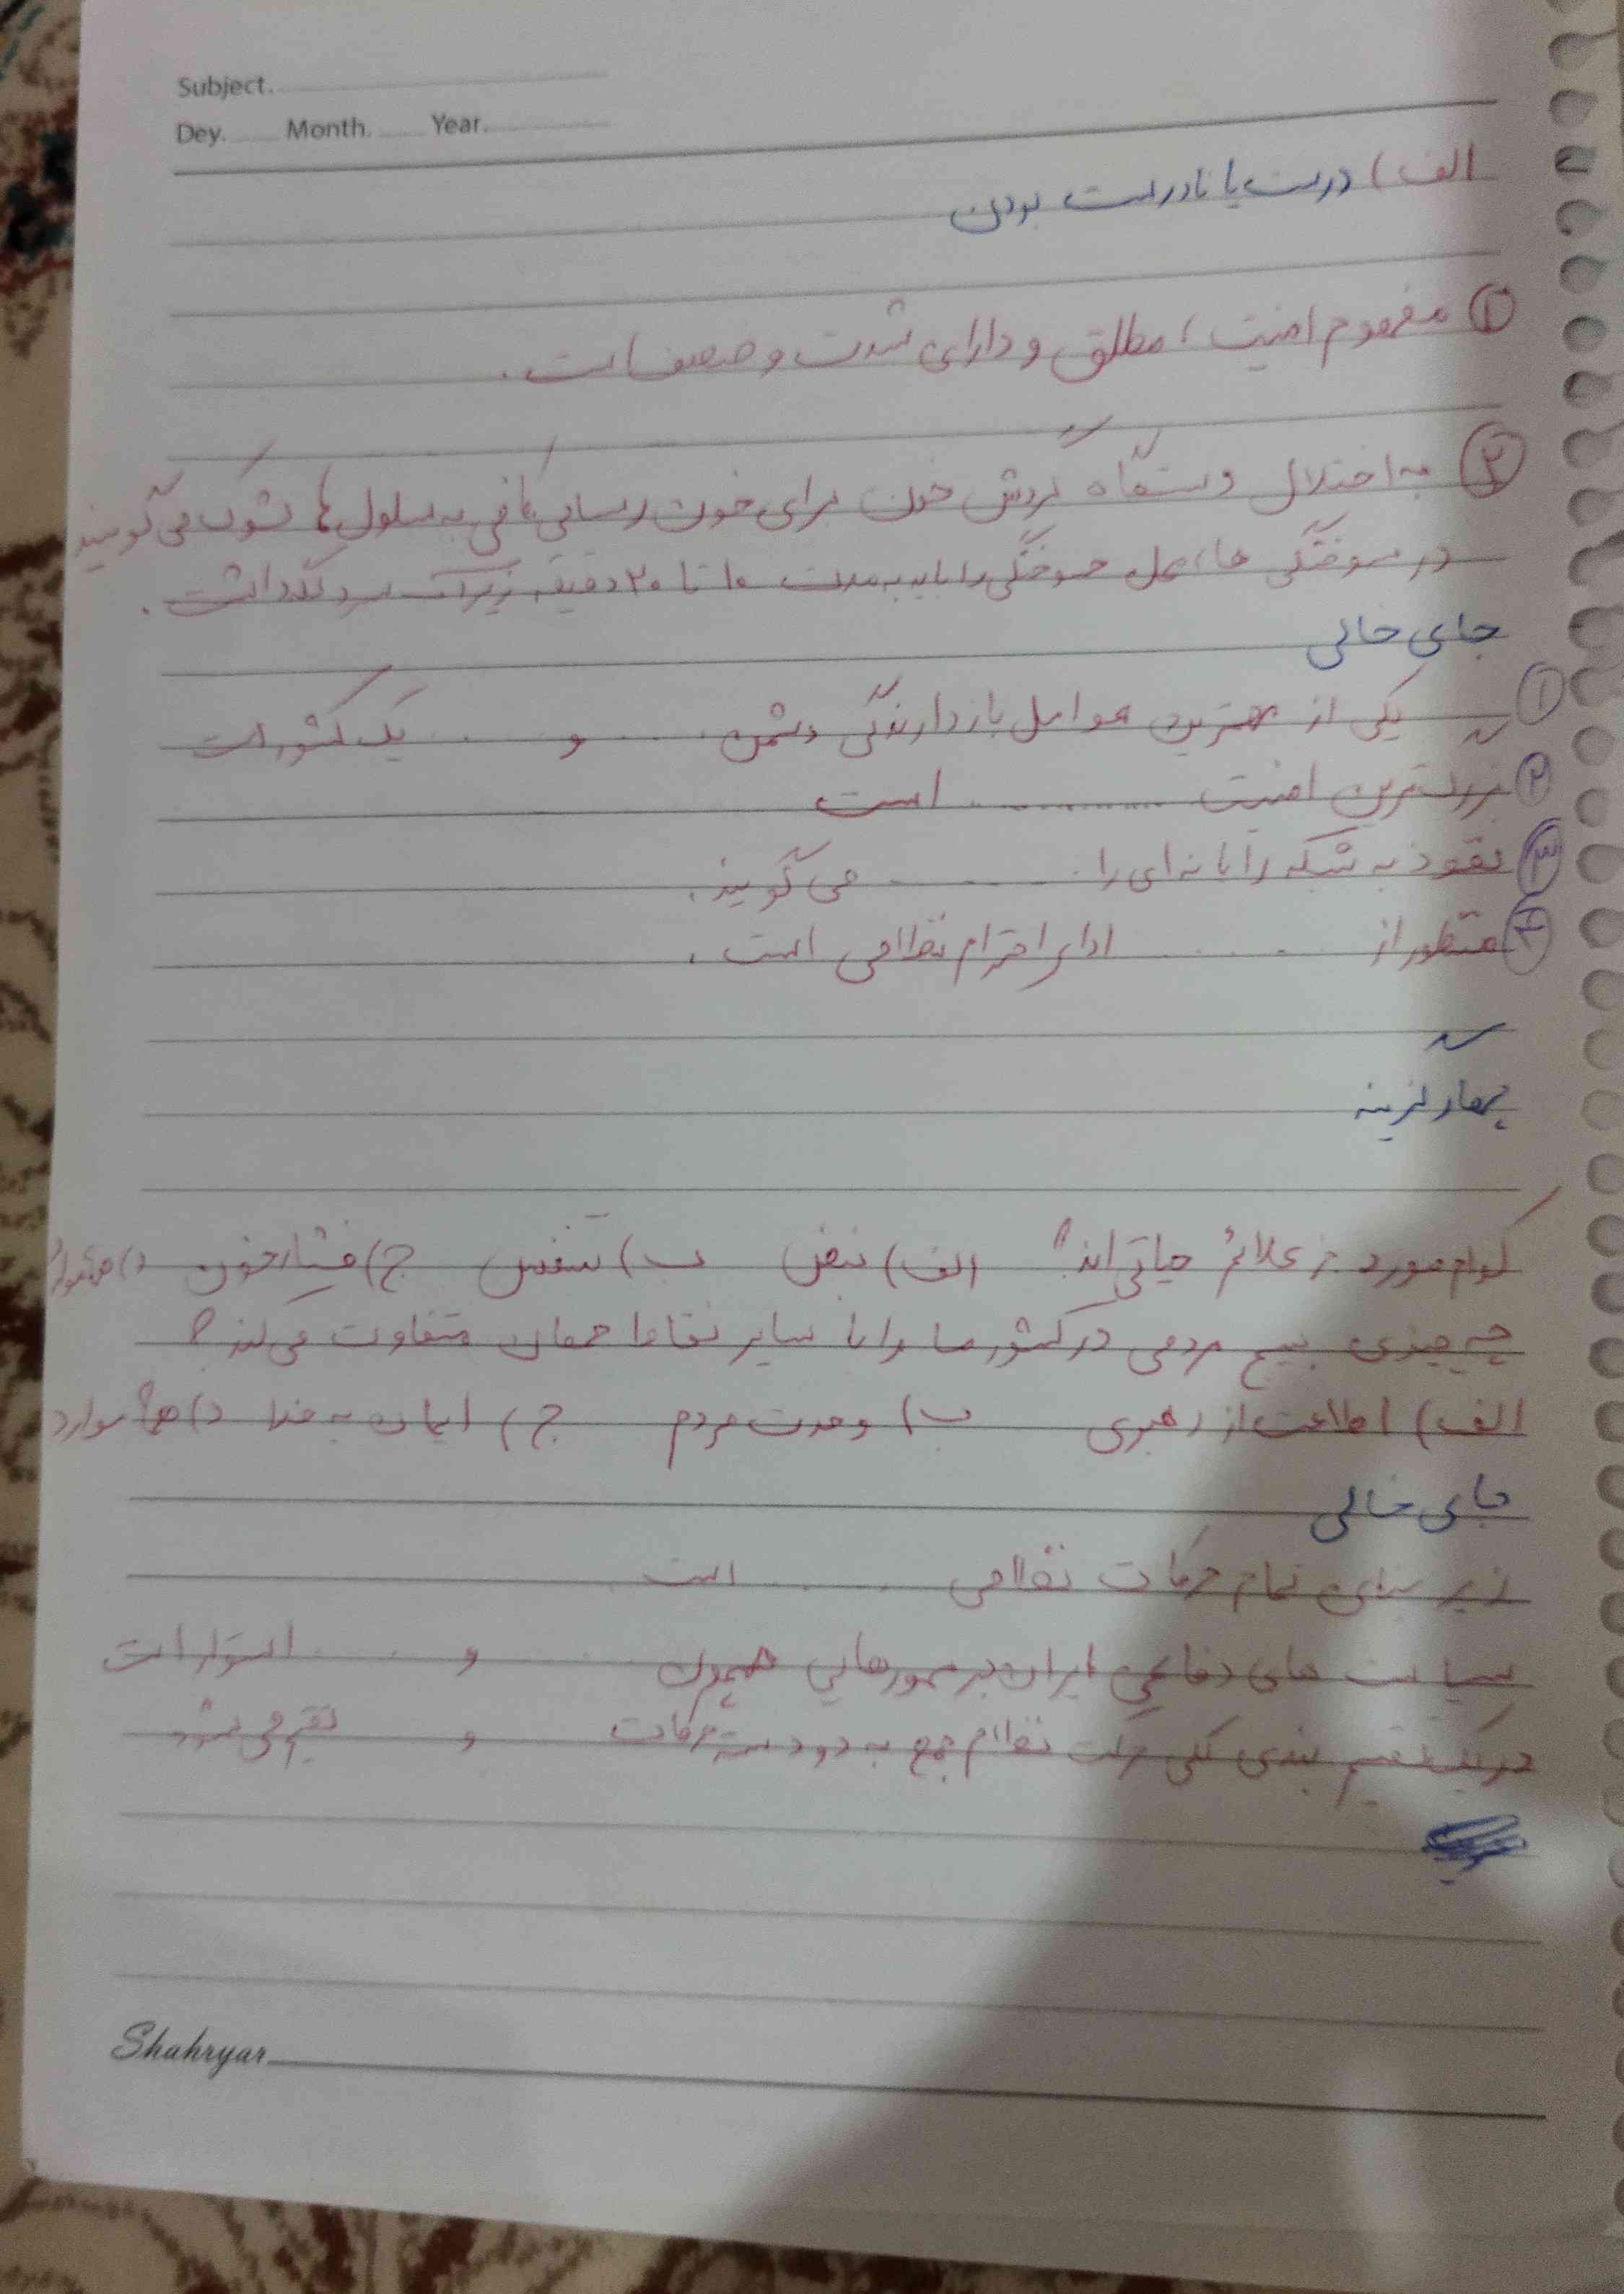 Subject.
Dey. Month. Year.
الف) درست یا نادرست بودن
۱ مفهوم امنیت، مطلق و دارای شدت و ضعف است.
۲ به اختلال دستگاه گردش خون برای خون رسانی کافی به سلول ها شوک می گویند
در سوختگی ها، محل سوختگی را باید به مدت ۱۰ تا ۲۰ دقیقه زیر آب سرد نگه داشت.
جای خالی
۱ یکی از بهترین عوامل بازدارندگی دشمن ..... و ..... یک کشور است
۲ بزرگ‌ترین امنیت .......... است
۳ نفوذ به شبکه رایانه ای را .......... می گویند.
۴ منظور از .......... ادای احترام نظامی است.
چهار گزینه
کدام مورد از علائم حیاتی اند؟ الف) نبض ب) تنفس ج) فشار خون د) همه موارد
چه چیزی بسیج مردمی در کشور ما را با سایر نقاط جهان متفاوت می کند؟
الف) اطاعت از رهبری ب) وحدت مردم ج) ایمان به خدا د) همه موارد
جای خالی
زیر بنای تمام حرکات نظامی ..... است
سیاست های دفاعی ایران بر محورهایی همچون ..... و ..... استوار است
در یک تقسیم بندی کلی حرکت نظام جمع به دو دسته حرکات و تقسیم می شود
Shahryar